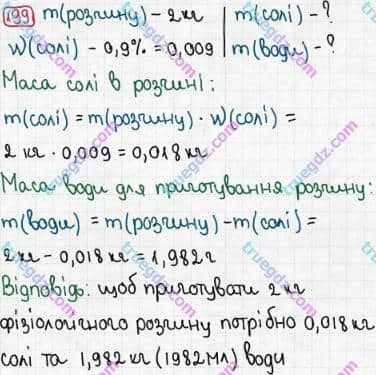 199 m(розчину) – 2 кг | m(солі) – ?
w(солі) – 0,9% = 0,009 | m(води) – ?
Маса солі в розчині:
m(солі) = m(розчину) · w(солі) =
2 кг · 0,009 = 0,018 кг
Маса води для приготування розчину:
m(води) = m(розчину) – m(солі) =
2 кг – 0,018 кг = 1,982г
Відповідь: щоб приготувати 2 кг
фізіологічного розчину потрібно 0,018 кг
солі та 1,982 кг (1982мл) води
truegdz.com